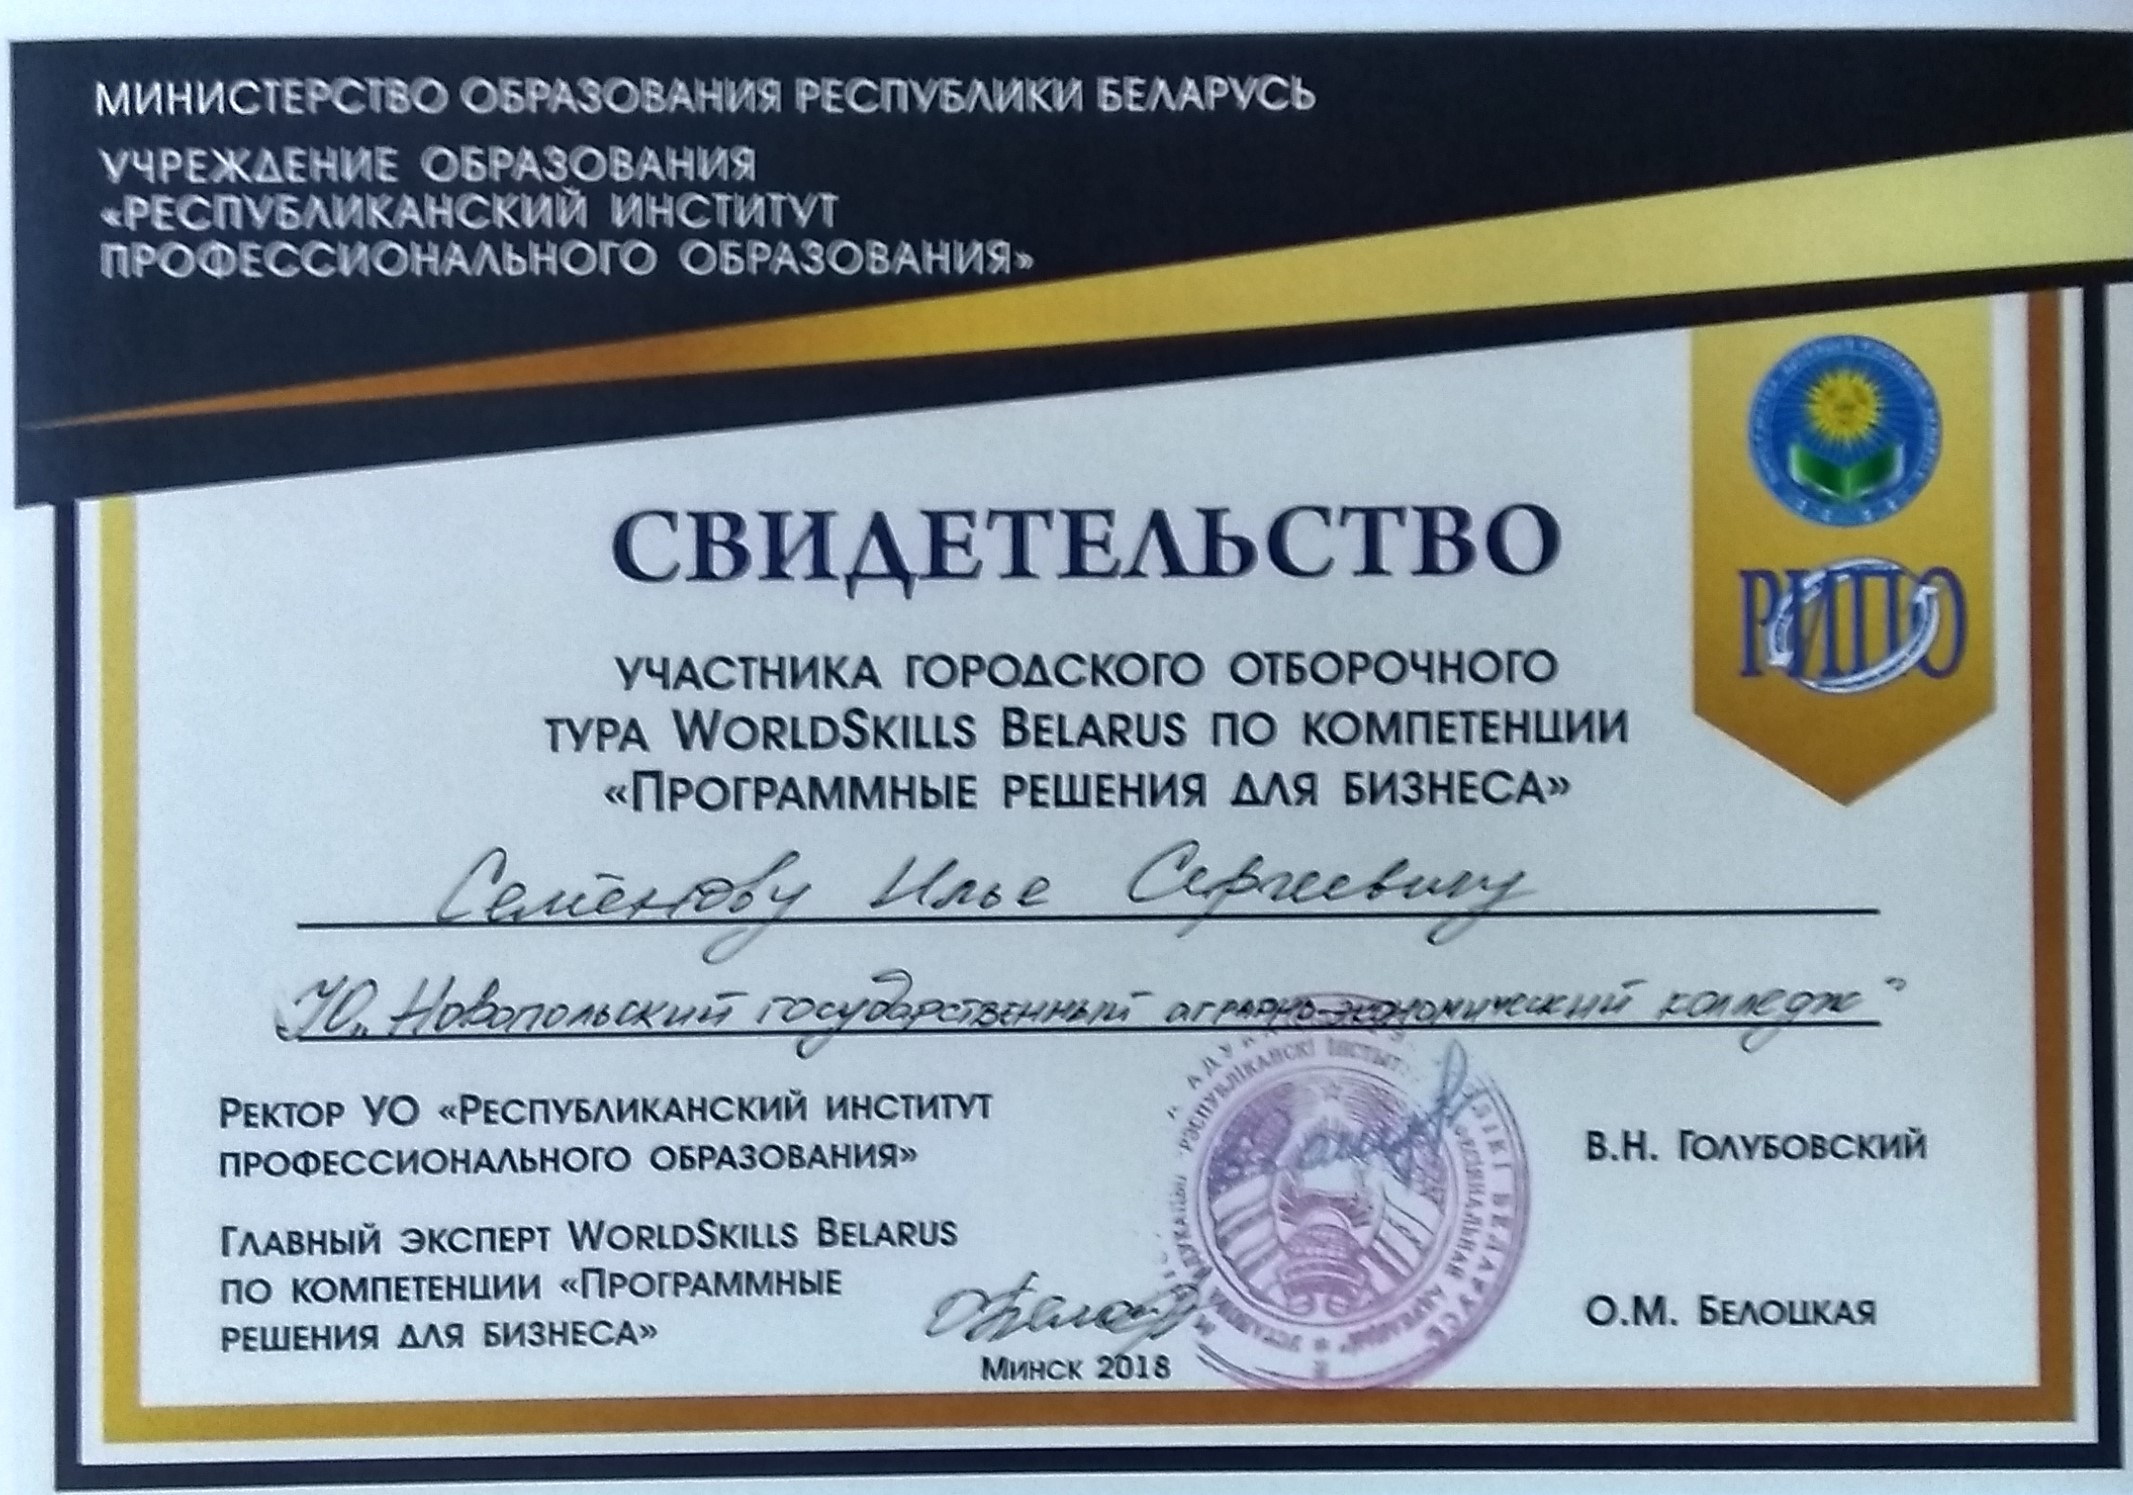 МИНИСТЕРСТВО ОБРАЗОВАНИЯ РЕСПУБЛИКИ БЕЛАРУСЬ
УЧРЕЖДЕНИЕ ОБРАЗОВАНИЯ
«РЕСПУБЛИКАНСКИЙ ИНСТИТУТ
ПРОФЕССИОНАЛЬНОГО ОБРАЗОВАНИЯ»
РИПО
СВИДЕТЕЛЬСТВО
УЧАСТНИКА ГОРОДСКОГО ОТБОРОЧНОГО
ТУРА WORLDSKILLS BELARUS ПО КОМПЕТЕНЦИИ
«ПРОГРАММНЫЕ РЕШЕНИЯ ДЛЯ БИЗНЕСА»
Семёнову Илье Сергеевичу
УО „Новопольский государственный аграрно-экономический колледж"
РЕКТОР УО «РЕСПУБЛИКАНСКИЙ ИНСТИТУТ
ПРОФЕССИОНАЛЬНОГО ОБРАЗОВАНИЯ»
В.Н. ГОЛУБОВСКИЙ
ГЛАВНЫЙ ЭКСПЕРТ WORLDSKILLS BELARUS
ПО КОМПЕТЕНЦИИ «ПРОГРАММНЫЕ
РЕШЕНИЯ ДЛЯ БИЗНЕСА»
О.М. БЕЛОЦКАЯ
МИНСК 2018
РЭСПУБЛІКАНСКІ ІНСТЫТ
БЕЛАРУСЬ